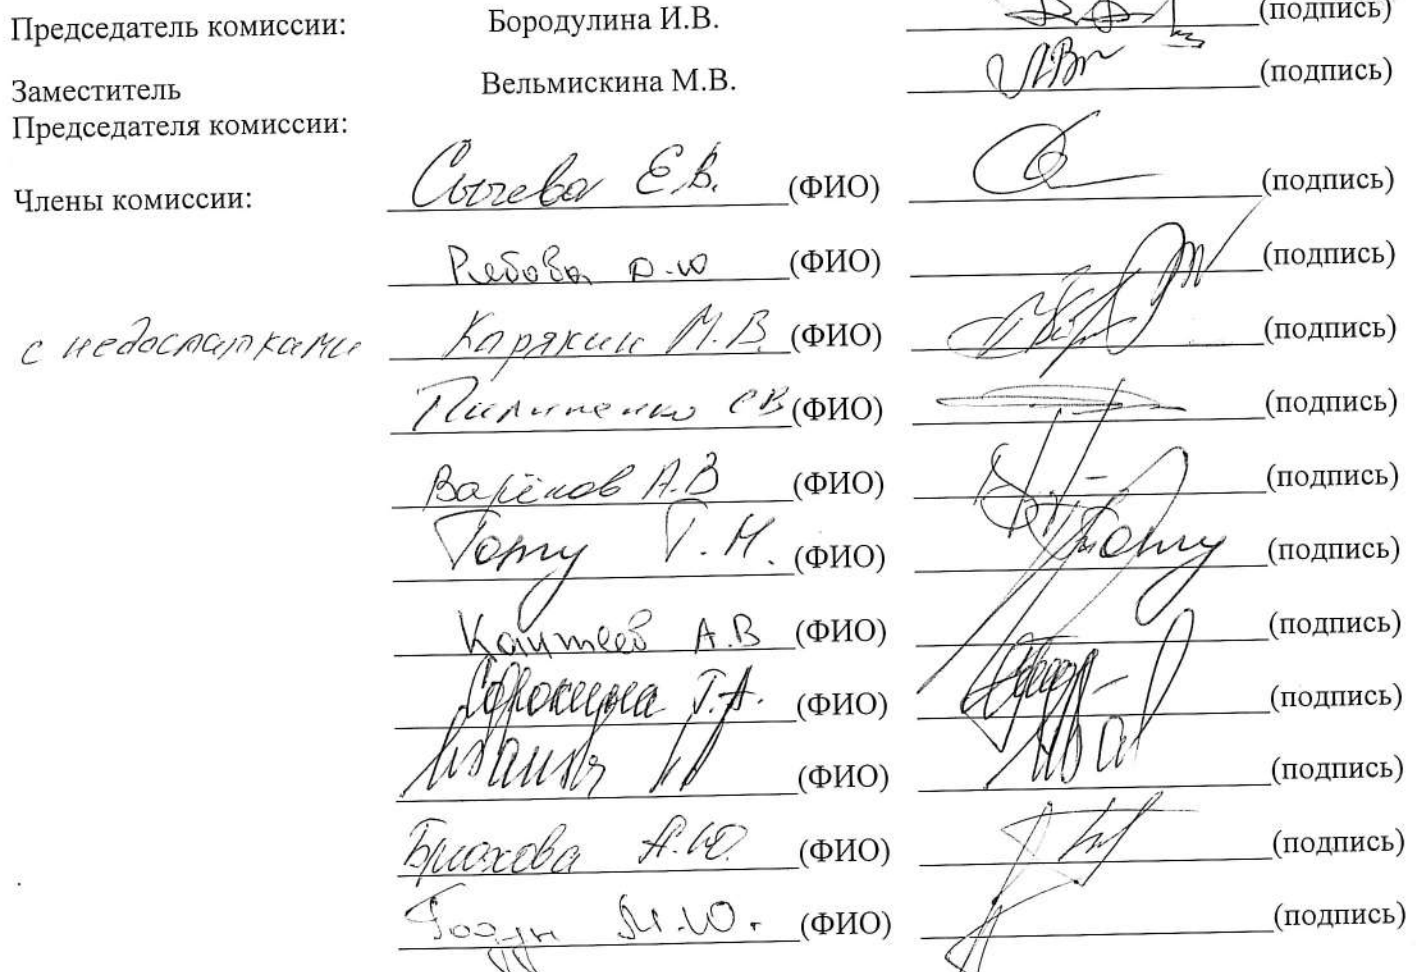 Председатель комиссии: Бородулина И.В. (подпись)
Заместитель Вельмискина М.В. (подпись)
Председателя комиссии:
Члены комиссии: Сычева Е.В. (ФИО) (подпись)
Рябова (ФИО) (подпись)
с недостатками Карякин М.В. (ФИО) (подпись)
Пилипенко СВ (ФИО) (подпись)
Варёнов А.В (ФИО) (подпись)
Г. Н. (ФИО) (подпись)
А.В (ФИО) (подпись)
Сорокина Т.А. (ФИО) (подпись)
(ФИО) (подпись)
Брюхова А.Ю. (ФИО) (подпись)
М.Ю. (ФИО) (подпись)